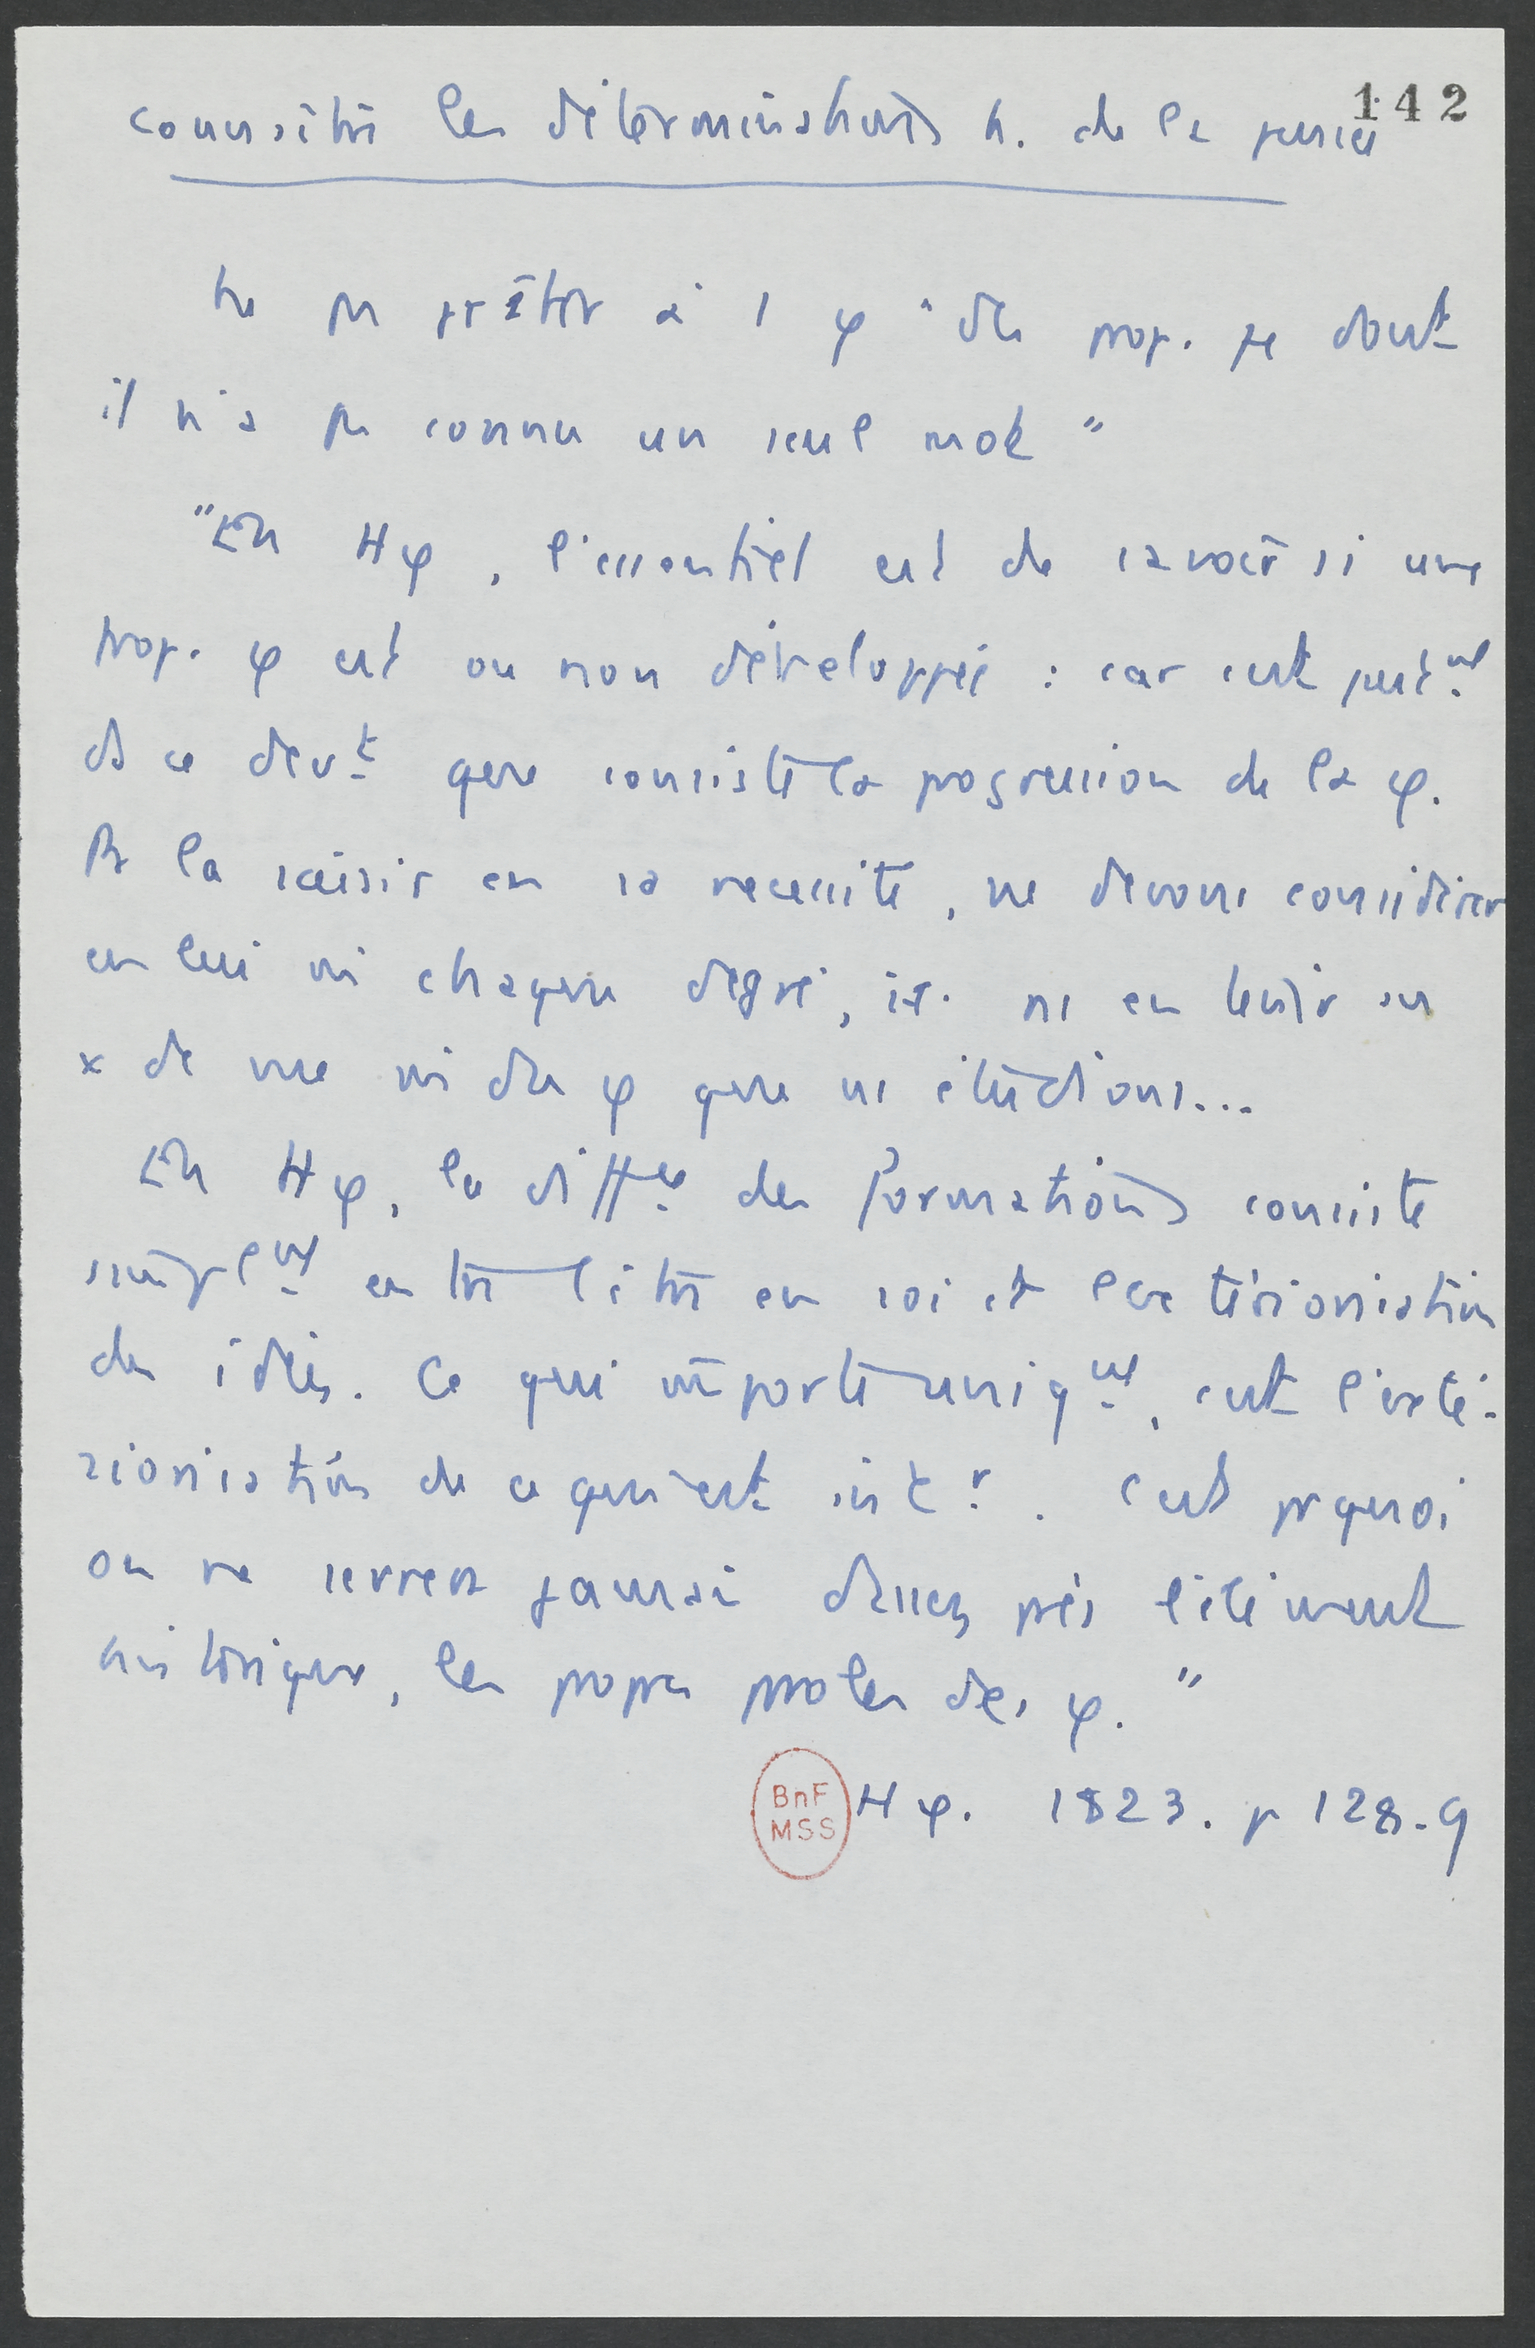 142
connaître les déterminations h. de la pensée
Ne pas prêter à 1 φ "des prop. φ dont
il n'a pas connu un seul mot"
"En Hφ, l'essentiel est de savoir si une
prop. φ est ou non développée : car c'est just^mt
ds ce dev^t que consiste la progression de la φ.
Pr la saisir en sa necessité, ns devons considérer
en lui mi chaque degré, ie. ns en tenir au
x de vue mi du φ que ns étudions...
En Hφ, la diff^ce des formations consiste
simpl^mt entre l'être en soi et l'extériorisation
des idées. Ce qui importe uniq^mt, c'est l'exté-
riorisation de ce qui est int^r. C'est pquoi
on ne serrera jamais d'assez près l'élément
historique, les propres paroles des φ."
BnF
MSS
Hφ. 1823. p 128-9